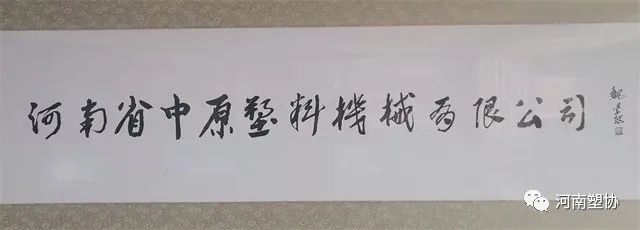 河南省中原塑料機械有限公司
河南塑协